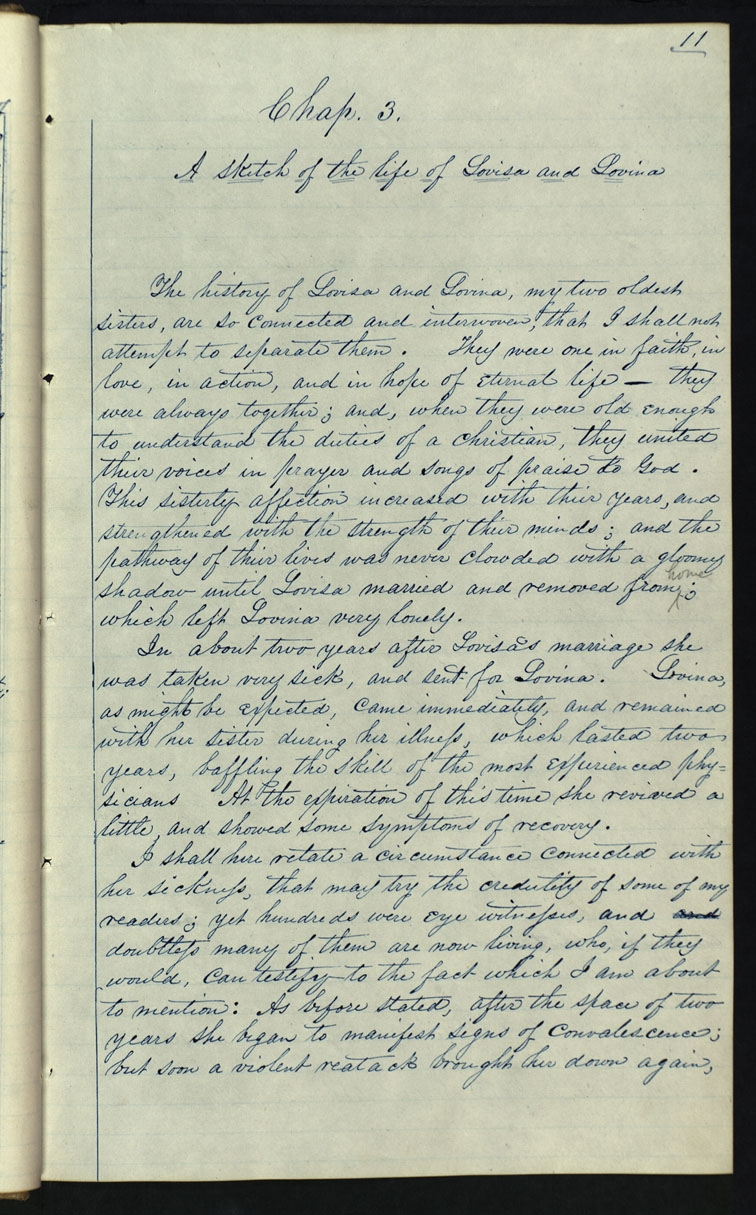 11
Chap. 3.
A sketch of the life of Lovisa and Lovina
The history of Lovisa and Lovina, my two oldest
sisters, are so connected and interwoven, that I shall not
attempt to separate them. They were one in faith, in
love, in action, and in hope of eternal life — they
were always together; and, when they were old enough
to understand the duties of a christian, they united
their voices in prayer and songs of praise to God.
This sisterly affection increased with their years, and
strengthened with the strength of their minds; and the
pathway of their lives was never clowded with a gloomy
shadow until Lovisa married and removed from home;
which left Lovina very lonely.
In about two years after Lovisa's marriage she
was taken very sick, and sent for Lovina. Lovina,
as might be expected, came immediately, and remained
with her sister during her illness, which lasted two
years, baffling the skill of the most experienced phy=
sicians At the expiration of this time she revived a
little, and showed some symptoms of recovery.
I shall here relate a circumstance connected with
her sickness, that may try the credulity of some of my
readers; yet hundreds were eye witnesses, and and
doubtless many of them are now living, who, if they
would, can testify to the fact which I am about
to mention: As before stated, after the space of two
years she began to manifest signs of convalescence;
but soon a violent reatack brought her down again,